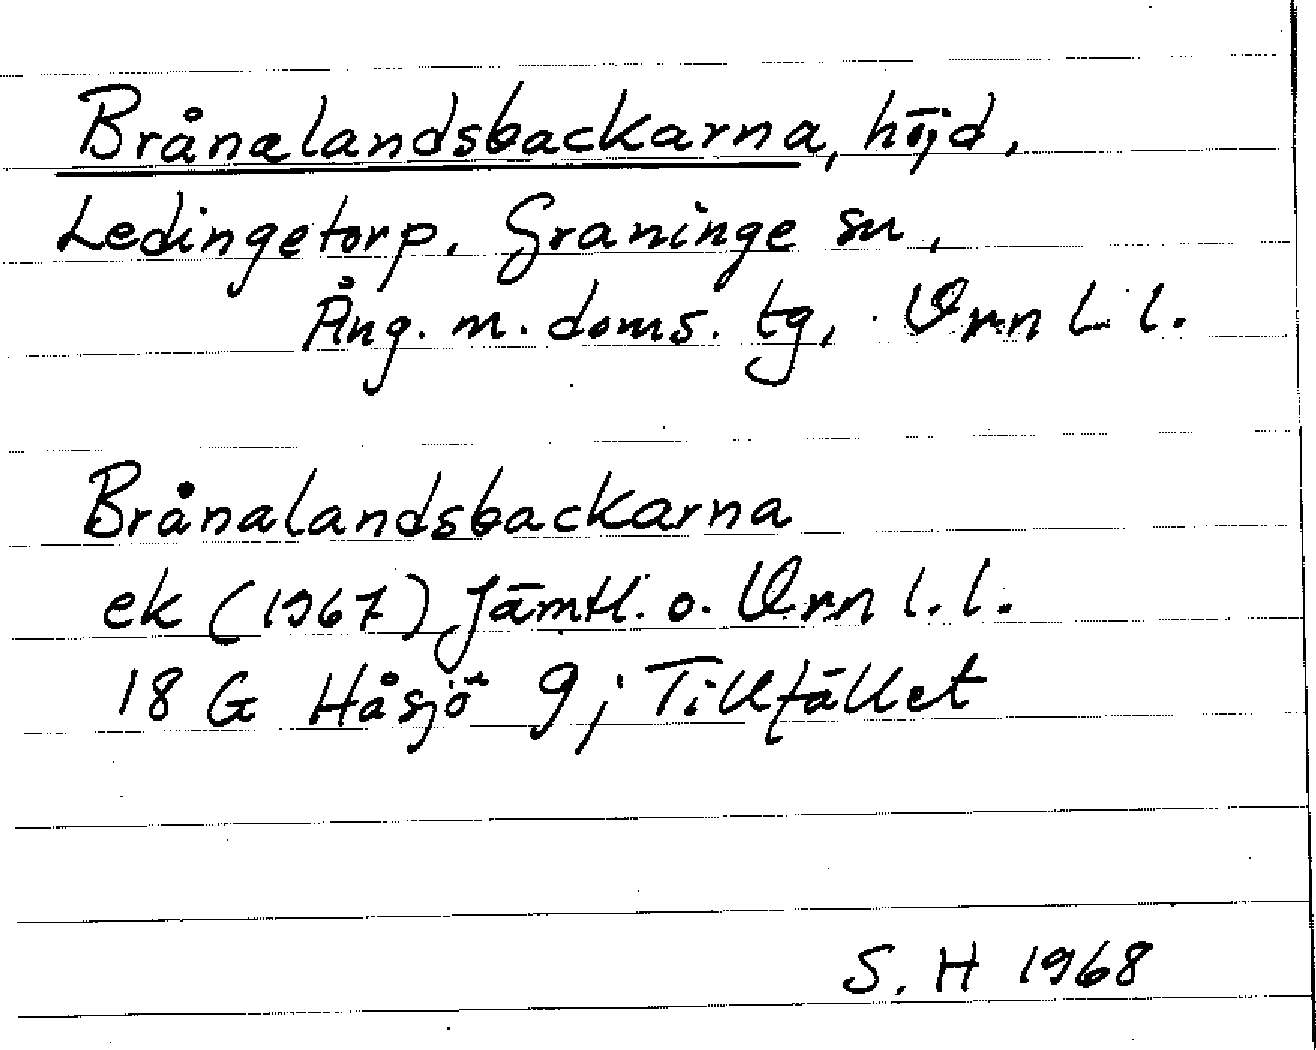 Brånalandsbackarna, höjd,
Ledingetorp. Graninge sn,
Ång. m. doms. tg, Vrnl l.
Brånalandsbackarna
ek (1967) Jämtl. o. Vrn l. l.
18 G Håsjö 9; Tillfället
S. H 1968